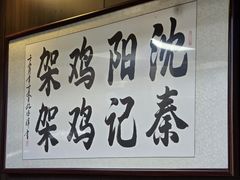 沈阳鸡架
秦记鸡架